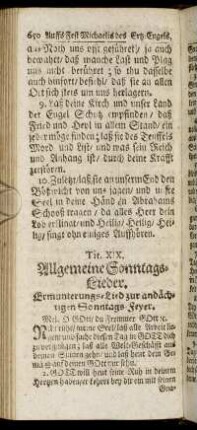 650 Auffs Fest Michaelis des Ertz-Engels,
aus Noth uns oyt geführet/ ja auch
bewahrt/ daß manche Last und Plag
uns nicht berühret; so thu dasselbe
auch hinfort/ befehl/ daß sie an allen
Ort sich stets um uns herlagern.
9. Laß deine Kirch und unser Land
der Engel Schutz empfinden/ daß
Fried und Heyl in allem Stand ein
jeder möge finden; laß sie des Teuffels
Mord und List/ und was sein Reich
und Anhang ist/ durch deine Krafft
zerstören.
10. Zuletzt/ laß sie an unserm End den
Bößwicht von uns jagen/ und unsre
Seel in deine Händ in Abrahams
Schooß tragen/ da alles Heer dein
Lob erklingt/ und Heilig/ Heilig/ Hei-
lig/ singt ohn einiges Auffhören.
Tit. XIX.
Allgemeine Sonntags-
Lieder.
Ermunterungs-Lied zur andäch-
tigen Sonntags-Feyer.
Mel. O Gott du frommer Gott ec.
meine Seel/ laß alle Arbeit lie-
gen/ und suche diesen Tag in GOTT dich
zu vergnügen; laß alle Welt-Geschäfft aus
deinen Sinnen gehn/ und laß heut dein Ge-
müth auf deinen GOTT nur sehn.
2. GOTT will heut seine Ruh in deinem
Hertzen haben/ er kehrt bey dir ein mit seinen